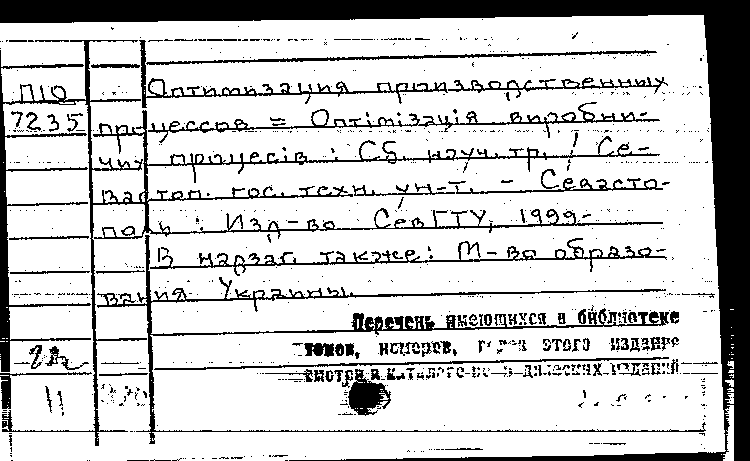 П10
7235
Оптимизация производственных
процессов = Оптимізація виробни-
чих процесів : Сб. науч. тр. / Се-
вастоп. гос. техн. ун-т. – Севасто-
поль : Изд-во СевГТУ, 1999-
В надзаг. также: М-во образо-
вания Украины.
Перечень имеющихся в библиотеке
томов, номеров, годов этого издания
смотри в каталоге периодических изданий
11